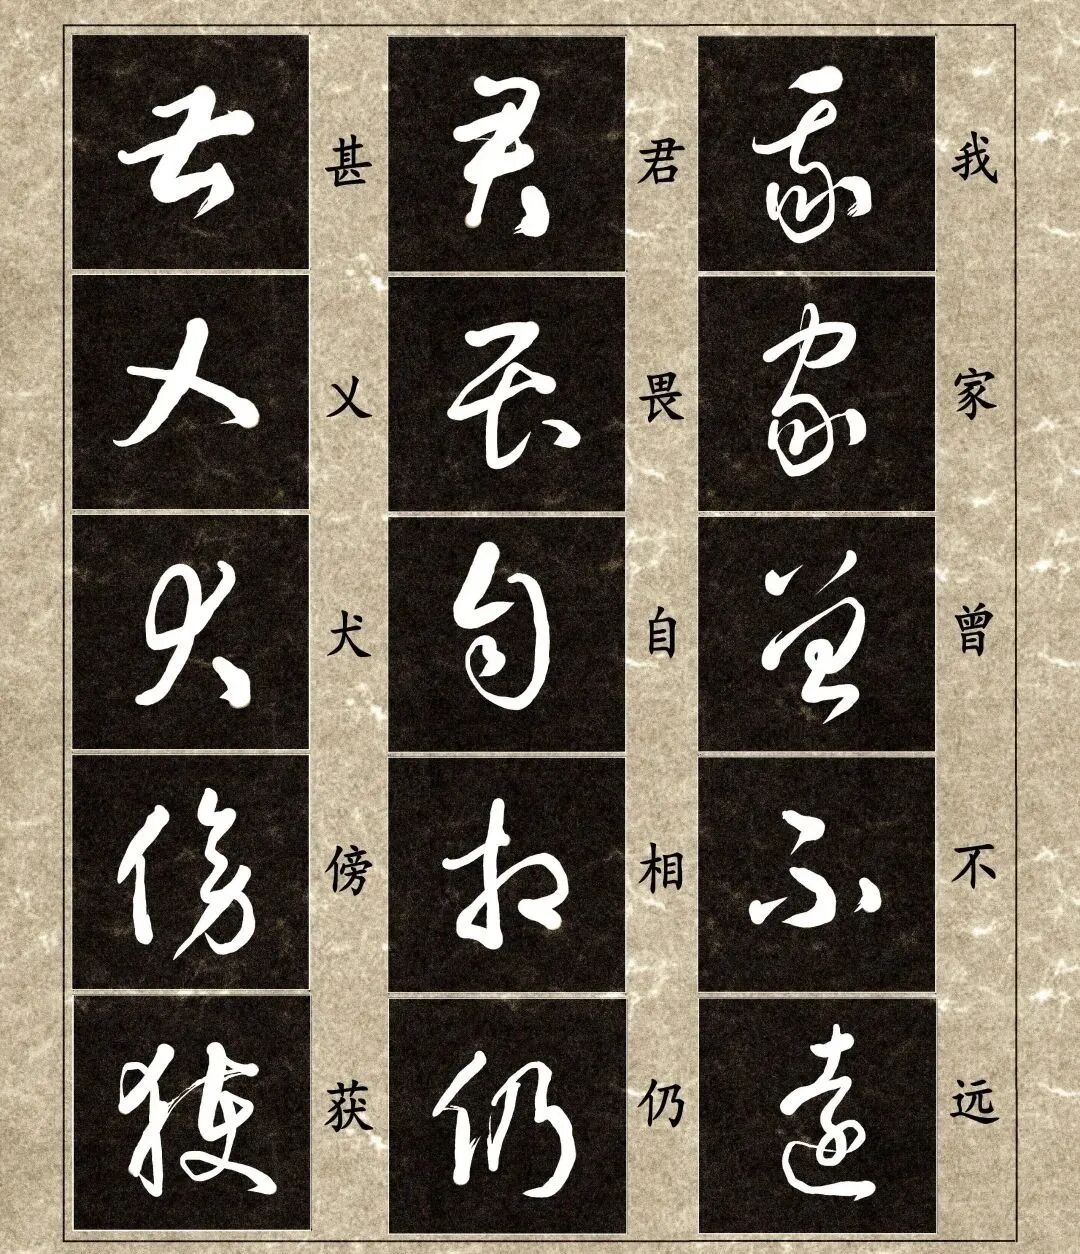 我家曾不远
君畏自相仍
甚乂犬傍获